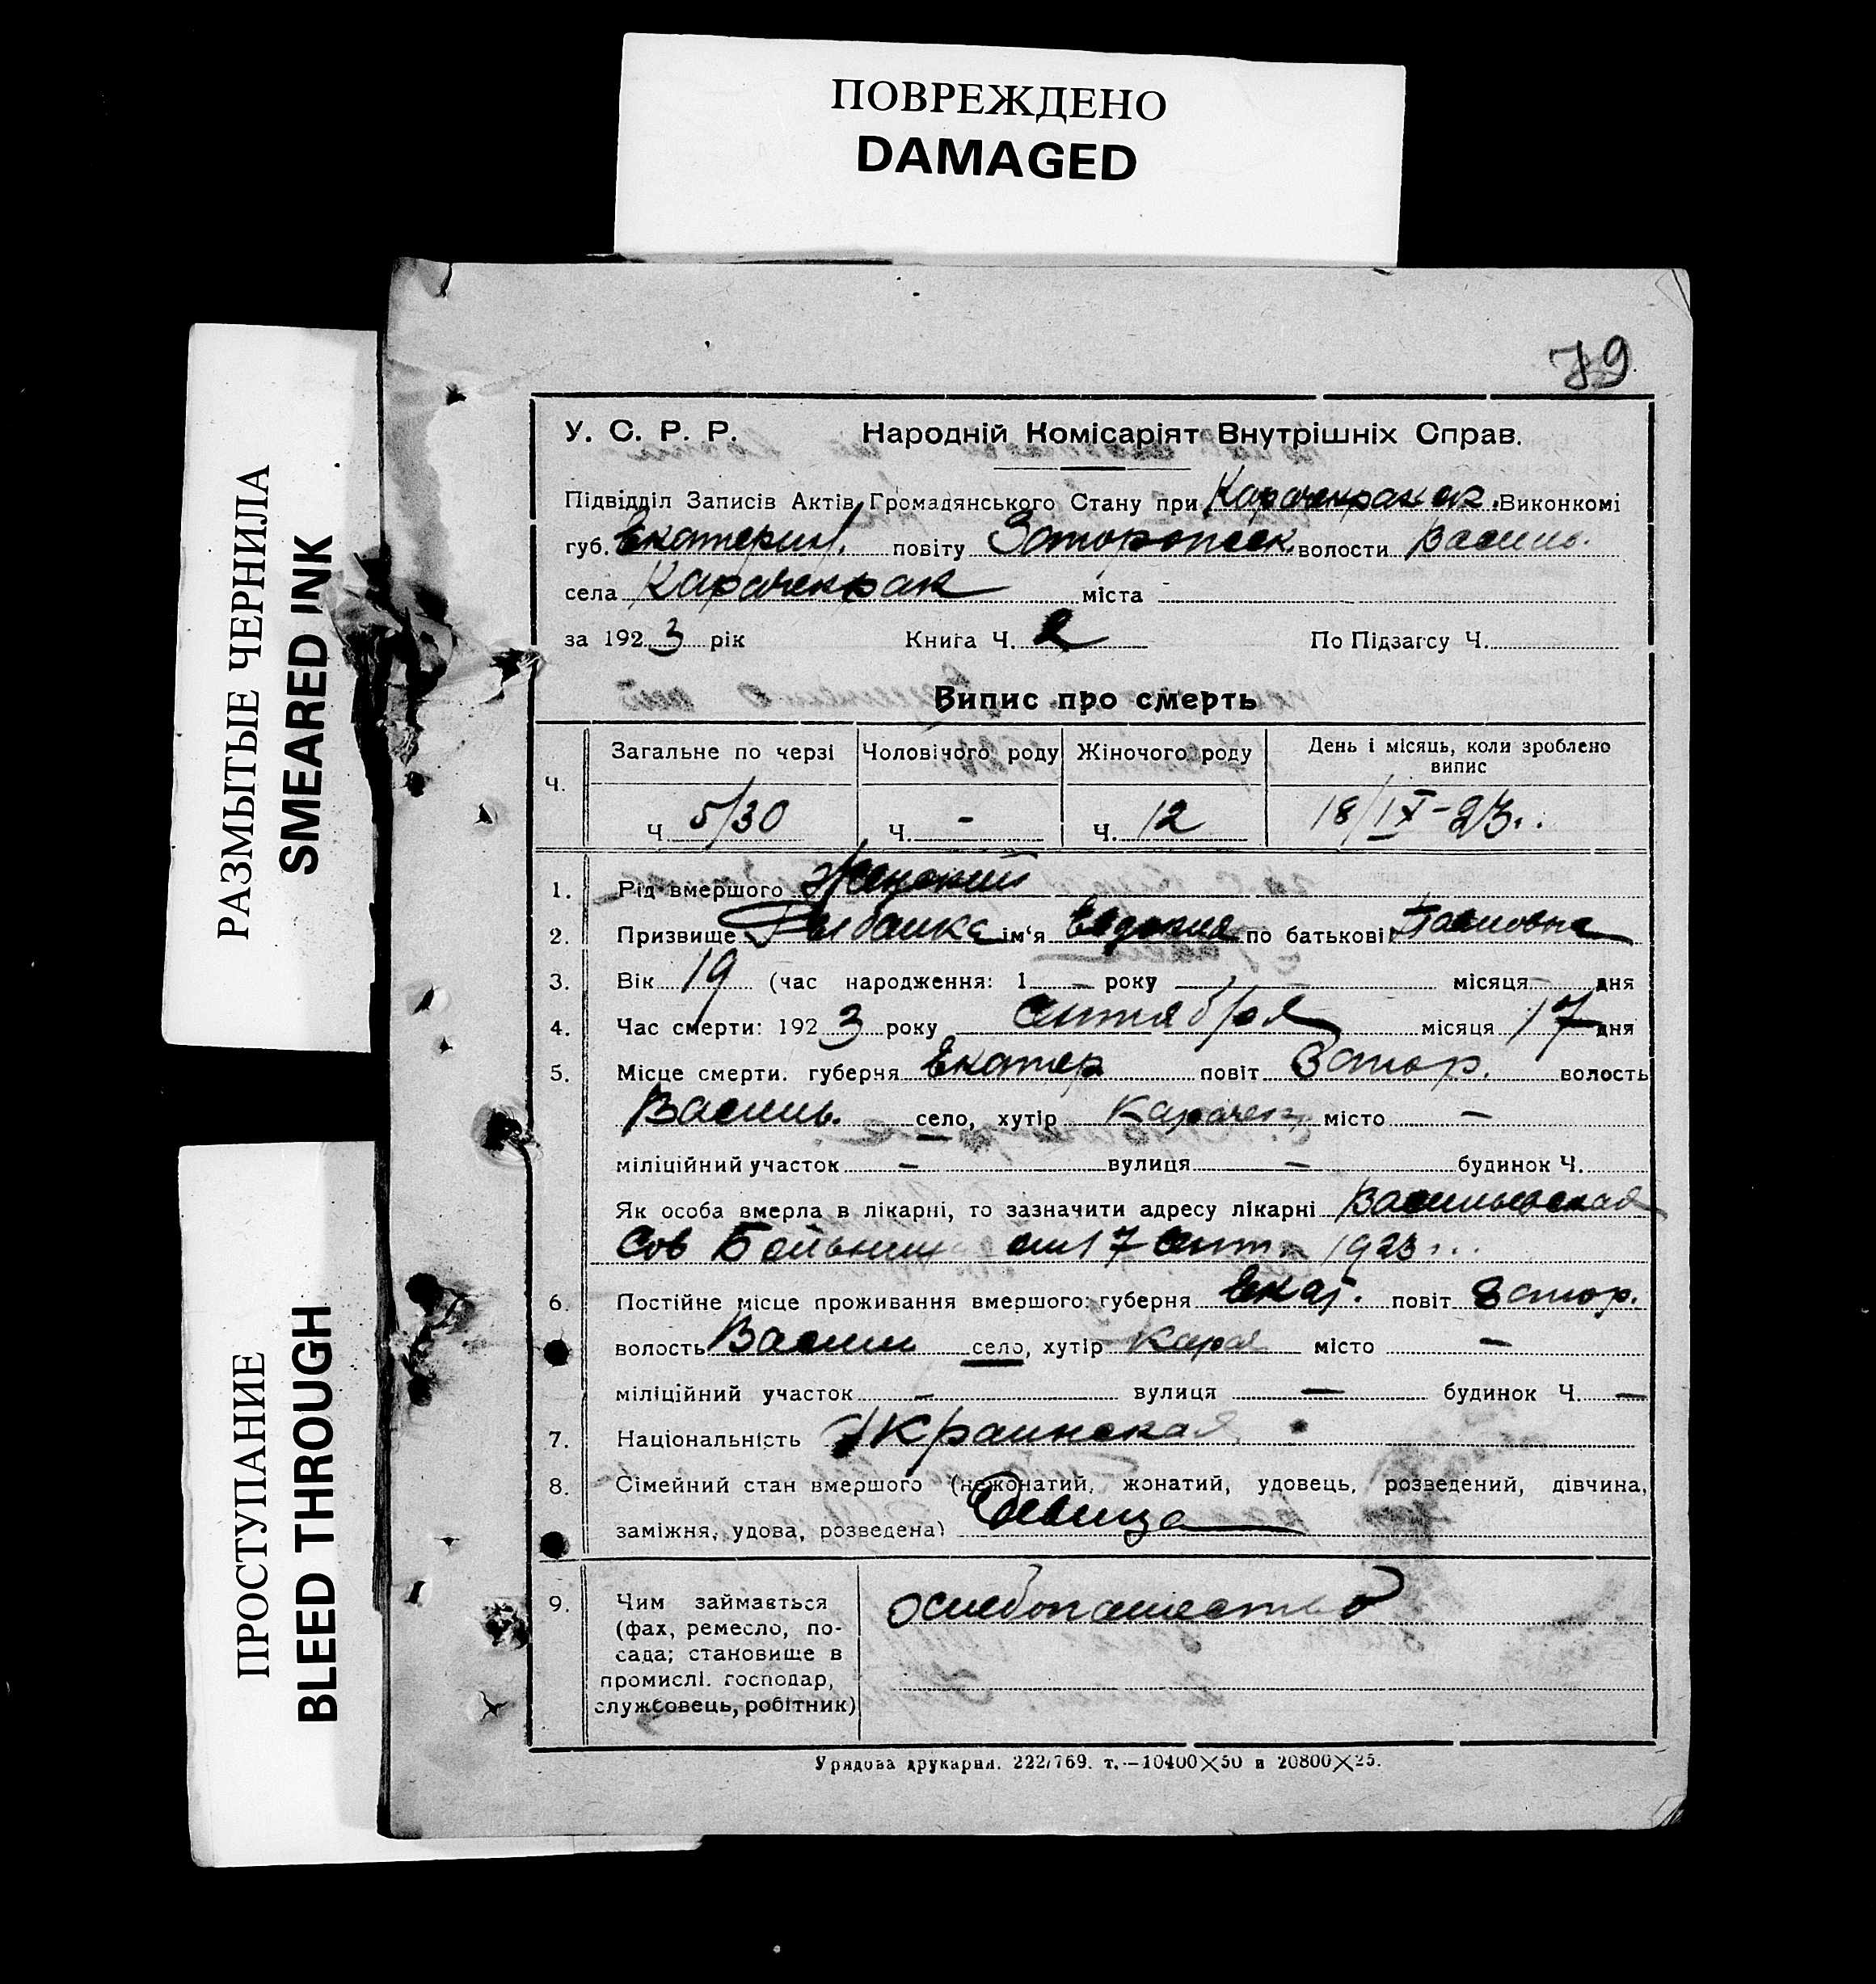 ПОВРЕЖДЕНО
DAMAGED
РАЗМЫТЫЕ ЧЕРНИЛА
SMEARED INK
ПРОСТУПАНИЕ
BLEED THROUGH
79
У. С. Р. Р. Народній Комісаріят Внутрішніх Справ.
Підвідділ Записів Актів Громадянського Стану при Карачекракск. Виконкомі
губ. Екатерин. повіту Запорожск. волости Василь.
села Карачекрак міста
за 1923 рік Книга Ч. 2 По Підзагсу Ч.
Випис про смерть
Ч. Загальне по черзі Чоловічого роду Жіночого роду День і місяць, коли зроблено випис
Ч. 5/30 Ч. - Ч. 12 18/IX-23.
1. Рід вмершого Женский
2. Призвище ім'я Евдокия по батькові
3. Вік 19 (час народження: 1 — року — місяця — дня
4. Час смерти: 1923 року сентября місяця 17 дня
5. Місце смерти. губерня Екатер повіт Запор. волость
Василь. село, хутір Карачек місто —
міліційний участок — вулиця — будинок Ч.
Як особа вмерла в лікарні, то зазначити адресу лікарні Васильевская
Сов Больница от 17 Сент. 1923
6. Постійне місце проживання вмершого: губерня Екат. повіт Запор.
волость Васил село, хутір Кара місто —
міліційний участок — вулиця — будинок Ч. —
7. Національність Украинская
8. Сімейний стан вмершого (нежонатий, жонатий, удовець, розведений, дівчина,
заміжня, удова, розведена) Девица
9. Чим займається хлебопашество
(фах, ремесло, по-
сада; становище в
промислі. господар,
службовець, робітник)
Урядова друкарня. 222/769. т.—10400×50 и 20800×25.